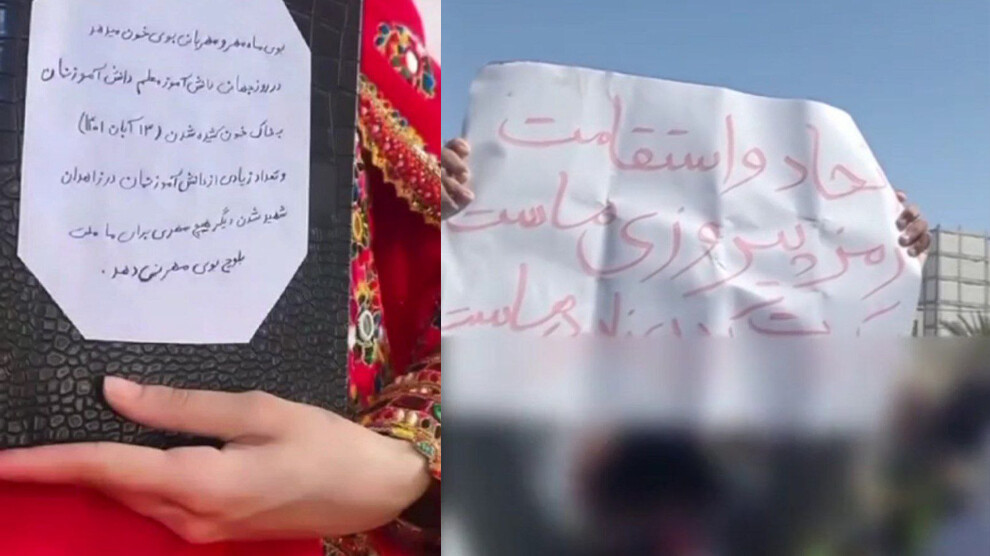 بوی ماه مهر و مهربان بوی خون میدهد
در روز جهان دانش آموز معلم دانش آموزشان
به خاک خون کشیده شدن (۱۳ آبان ۱۴۰۱)
و تعداد زیادی از دانش آموزشان در زاهدان
شهید شدن دیگر هیچ مهری برای ما ملت
بلوچ بوی مهر نمی دهد.
حاد و استقامت
رمز پیروزی ماست